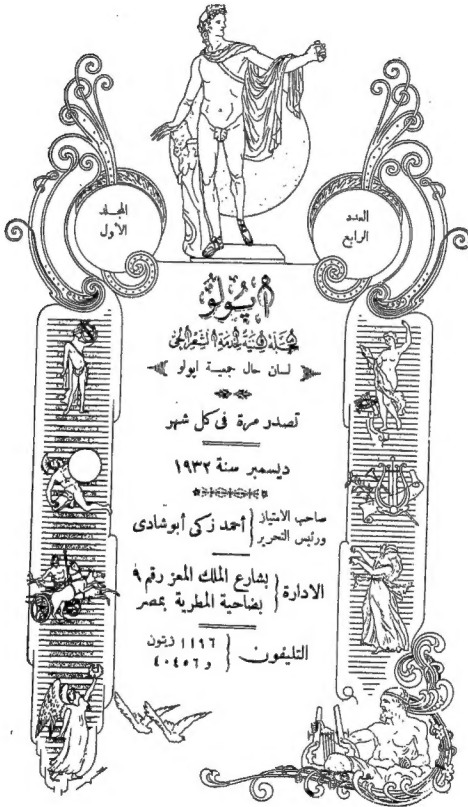 العدد
الرابع
المجلد
الأول
أپولو
مجلة فنية لخدمة الشعر الحي
لسان حال جمعية ابولو
تصدر مرة فى كل شهر
ديسمبر سنة ١٩٣٢
صاحب الامتياز
ورئيس التحرير } أحمد زكى أبوشادى
الادارة { بشارع الملك المعز رقم ٩
بضاحية المطرية بمصر
التليفون { ١١٩٦ زيتون
و ٤٠٤٥٦